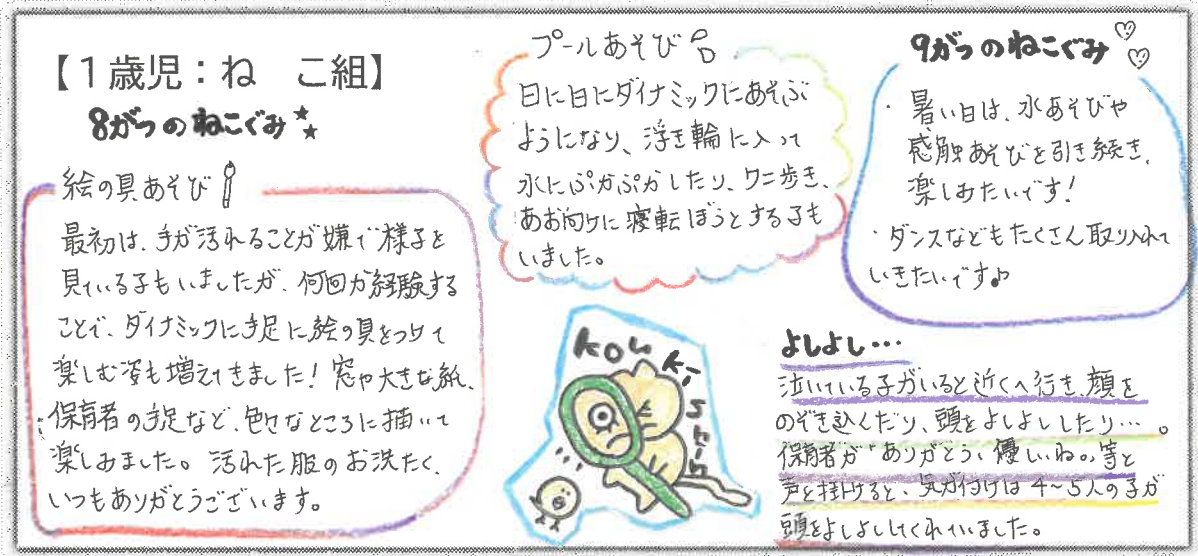 【1歳児：ね　こ組】
8がつのねこぐみ
絵の具あそび
最初は、手が汚れることが嫌で様子を
見ている子もいましたが、何回か経験する
ことで、ダイナミックに手足に絵の具をつけて
楽しむ姿も増えてきました！窓や大きな紙、
保育者の手足など、色々なところに描いて
楽しみました。汚れた服のお洗たく、
いつもありがとうございます。
プールあそび
日に日にダイナミックにあそぶ
ようになり、浮き輪に入って
水にぷかぷかしたり、ワニ歩き、
あお向けに寝転ぼうとする子も
いました。
koukishin
9がつのねこぐみ
・暑い日は、水あそびや
感触あそびを引き続き、
楽しみたいです！
・ダンスなどもたくさん取り入れて
いきたいです♪
よしよし…
泣いている子がいると近くへ行き、顔を
のぞき込んだり、頭をよしよししたり…。
保育者が"ありがとう、優しいね。"等と
声を掛けると、気が付けば4〜5人の子が
頭をよしよししてくれていました。